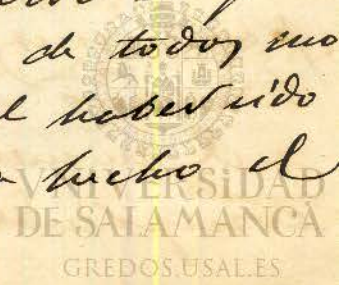 de todos mo
haber sido
hecho el
VNiVERSiDAD
DE SALAMANCA
GREDOS.USAL.ES